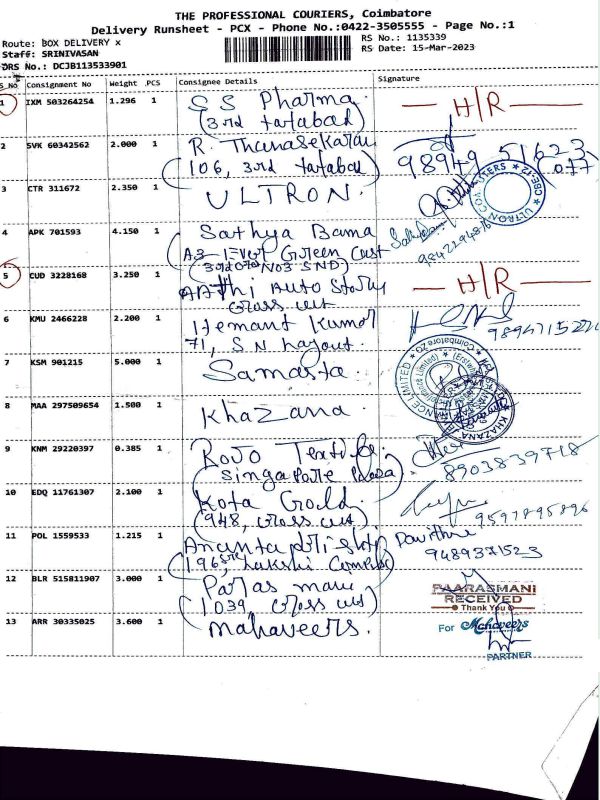 THE PROFESSIONAL COURIERS, Coimbatore
Delivery Runsheet - PCX - Phone No.:0422-3505555 - Page No.:1
Route: BOX DELIVERY x
RS No.: 1135339
Staff: SRINIVASAN
RS Date: 15-Mar-2023
DRS No.: DCJB113533901
S No Consignment No Weight PCS Consignee Details Signature
1 IXM 503264254 1.296 1 SS Pharma. — H/R —
(3rd tatabad)
2 SVK 60342562 2.000 1 R. Thanasekaran 98949 51623
(106, 3rd tatabad) (077)
3 CTR 311672 2.350 1 ULTRON.
4 APK 701593 4.150 1 Sathya Bama
A3-Ever Green
5 CUD 3228168 3.250 1 Auto — H/R —
Cross cut
6 KMU 2466228 2.200 1 Hemant Kumar
71, S N Layout.
7 KSM 901215 5.000 1 Samasta.
8 MAA 297509654 1.500 1 Khazana
KHAZANA
9 KNM 29220397 0.385 1 Rojo
(Singapore Plaza) 8903839718
10 EDQ 11761307 2.100 1 Kota Gold.
(948, cross cut). 9597895896
11 POL 1559533 1.215 1 Pavithra
9489371523
12 BLR 515811907 3.000 1 Paras mani PAARASMANI
(1039, cross cut) RECEIVED
Thank You
13 ARR 30335025 3.600 1 Mahaveers. For Mahaveers
PARTNER